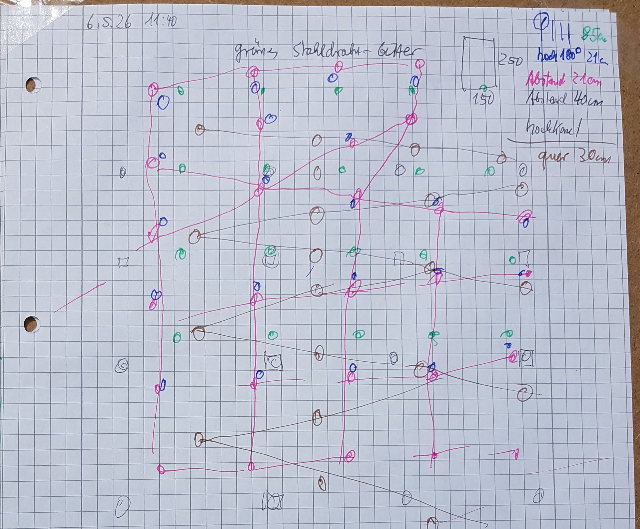 6.5.26 11:40
grünes Stahldraht-Gitter
250
150
85m
hoch 180° 21c
Abstand 21cm
Abstand 40cm
quer 30cm